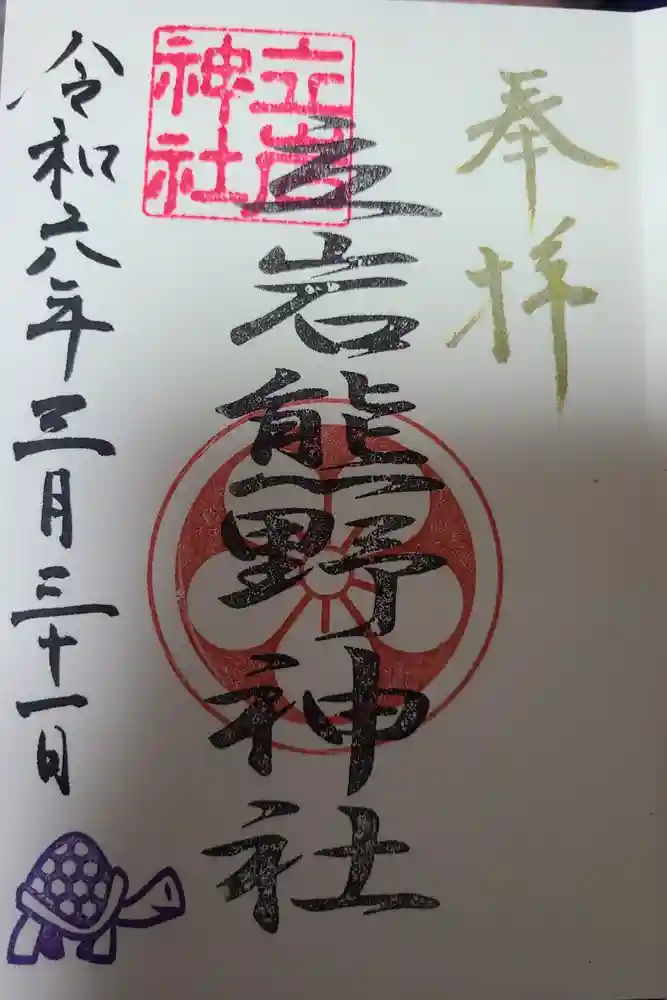 奉拝
立岩
神社
立岩熊野神社
令和六年三月三十一日